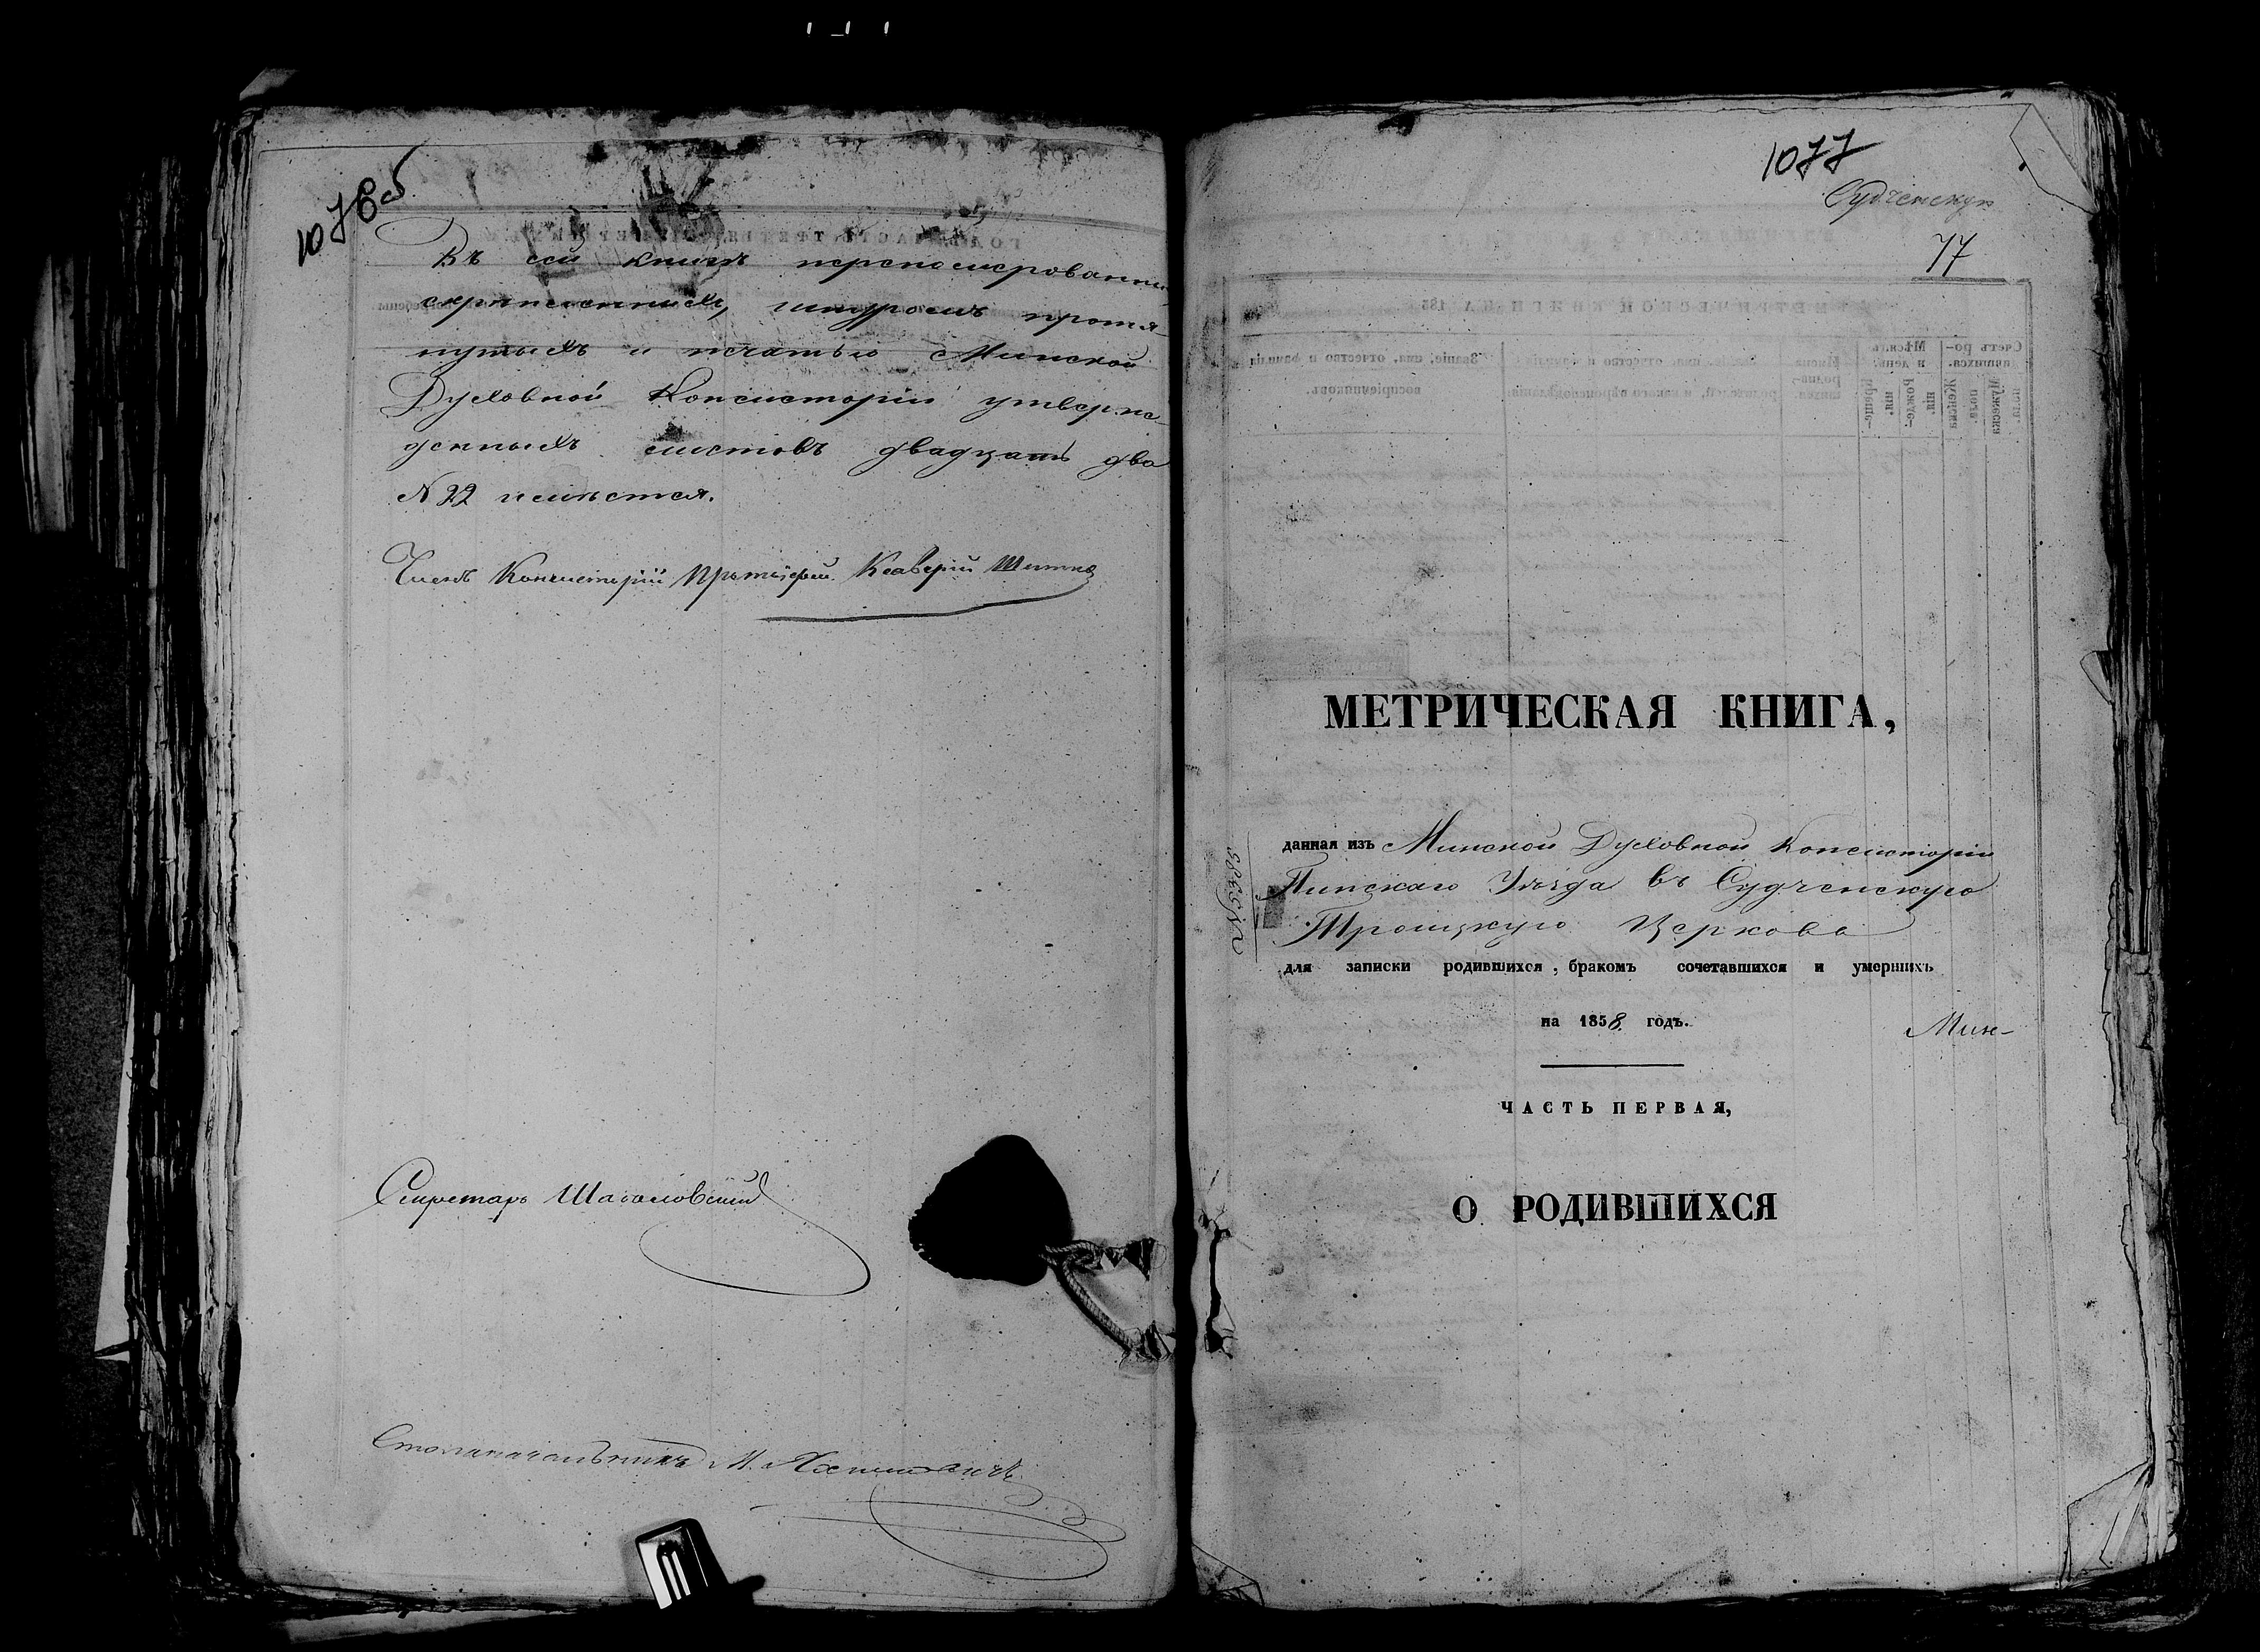 1076об
Въ сей книгѣ перенумерованныхъ
скрѣпленныхъ, шнуромъ протя-
нутыхъ и печатью Минской
Духовной Консисторіи утверж-
денныхъ листовъ двадцать два
№ 22 имѣется.
Членъ Консисторіи Протоіерей
Секретарь
Столоначальникъ М.
1077
Судченскую
77
МЕТРИЧЕСКАЯ КНИГА,
данная изъ Минской Духовной Консисторіи
Пинскаго Уѣзда въ Судченскую
Троицкую Церковь
для записки родившихся, бракомъ сочетавшихся и умершихъ
на 1858 годъ.
Мин-
ЧАСТЬ ПЕРВАЯ,
О РОДИВШИХСЯ